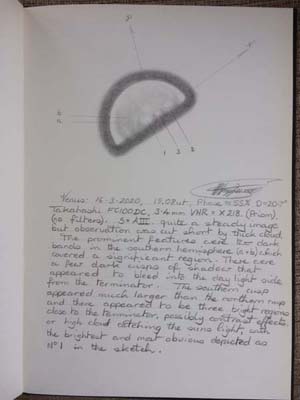 b
a
1
2
3
Venus: 16-3-2020, 18.08ut, Phase ≈ 55% D=20.7"
Takahashi FC100DC, 3.4mm VHR = X218. (Prism).
(no filters). S= AIII quite a steady image
but observation was cut short by thick cloud
The prominent features were two dark
bands in the southern hemisphere (a+b), which
covered a significant region. There were
a few dark wisps of shades that
appeared to bleed into the day light side
from the terminator. The southern cusp
appeared much larger than the northern cusp
and there appeared to be three bright regions
close to the terminator, possibly contrast effects,
or high cloud catching the suns light, with
the brightest and most obvious depicted as
No1 in the sketch.